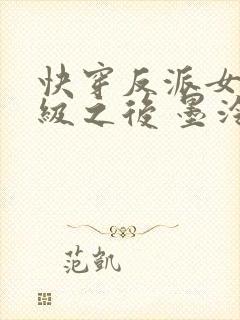 快穿反派女
級之後 墨
范凱